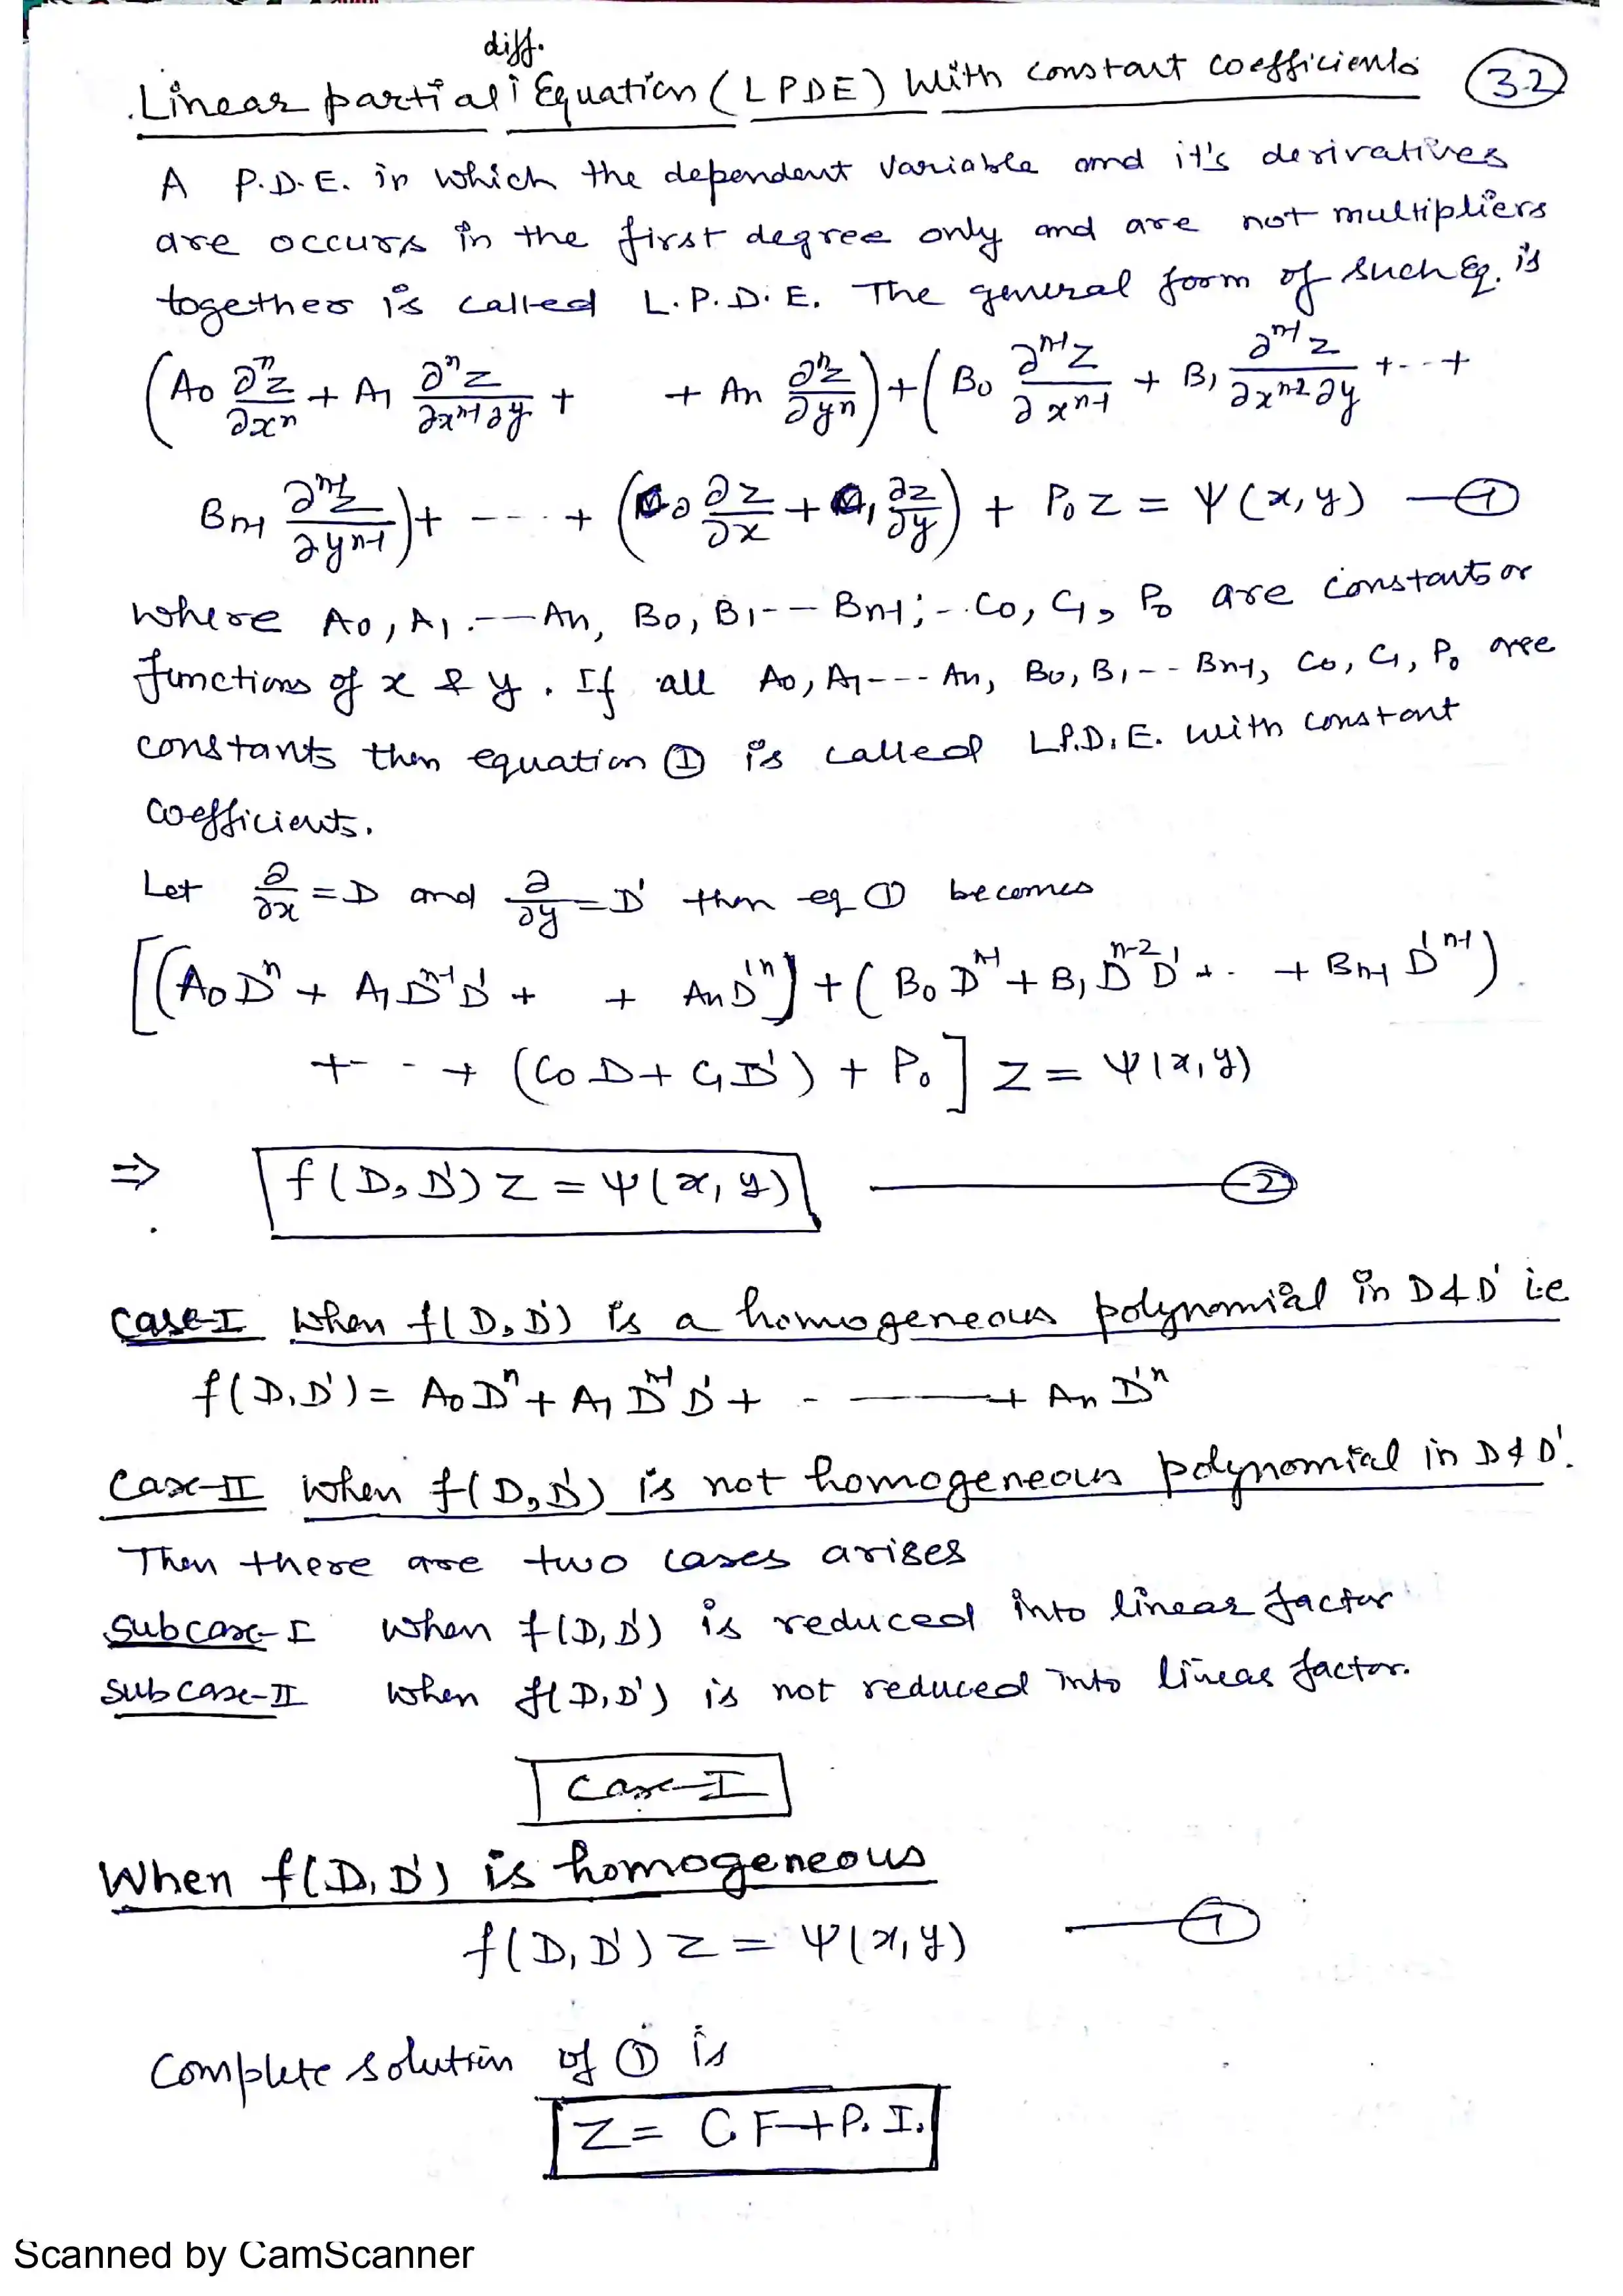 diff.
Linear partial Equation (LPDE) with constant coefficients 3.2
A P.D.E. in which the dependent variable and it's derivatives
are occurs in the first degree only and are not multipliers
together is called L.P.D.E. The general form of such Eq. is
(A₀ ∂ⁿz/∂xⁿ + A₁ ∂ⁿz/∂xⁿ⁻¹∂y + + Aₙ ∂ⁿz/∂yⁿ) + (B₀ ∂ⁿ⁻¹z/∂xⁿ⁻¹ + B₁ ∂ⁿ⁻¹z/∂xⁿ⁻²∂y + - - +
Bₙ₋₁ ∂ⁿ⁻¹z/∂yⁿ⁻¹) + - - - - + (C₀ ∂z/∂x + C₁ ∂z/∂y) + P₀ z = Ψ(x, y) — ①
where A₀, A₁ - - - Aₙ, B₀, B₁ - - - Bₙ₋₁; - . C₀, C₁, P₀ are constants or
functions of x & y. If all A₀, A₁ - - - Aₙ, B₀, B₁ - - Bₙ₋₁, C₀, C₁, P₀ are
constants then equation ① is called L.P.D.E. with constant
coefficients.
Let ∂/∂x = D and ∂/∂y = D' then eq ① becomes
[(A₀Dⁿ + A₁Dⁿ⁻¹D' + + AₙD'ⁿ) + (B₀Dⁿ⁻¹ + B₁Dⁿ⁻²D' + - + Bₙ₋₁D'ⁿ⁻¹)
+ - - + (C₀D + C₁D') + P₀] z = Ψ(x, y)
⇒ f(D, D') z = Ψ(x, y) — ②
Case-I When f(D, D') is a homogeneous polynomial in D & D' i.e
f(D, D') = A₀Dⁿ + A₁Dⁿ⁻¹D' + - — + AₙD'ⁿ
Case-II when f(D, D') is not homogeneous polynomial in D & D'.
Then there are two cases arises
Subcase-I when f(D, D') is reduced into linear factor
Subcase-II when f(D, D') is not reduced into linear factor.
Case-I
When f(D, D') is homogeneous
f(D, D') z = Ψ(x, y) — ①
Complete solution of ① is
Z = C.F + P.I.
Scanned by CamScanner